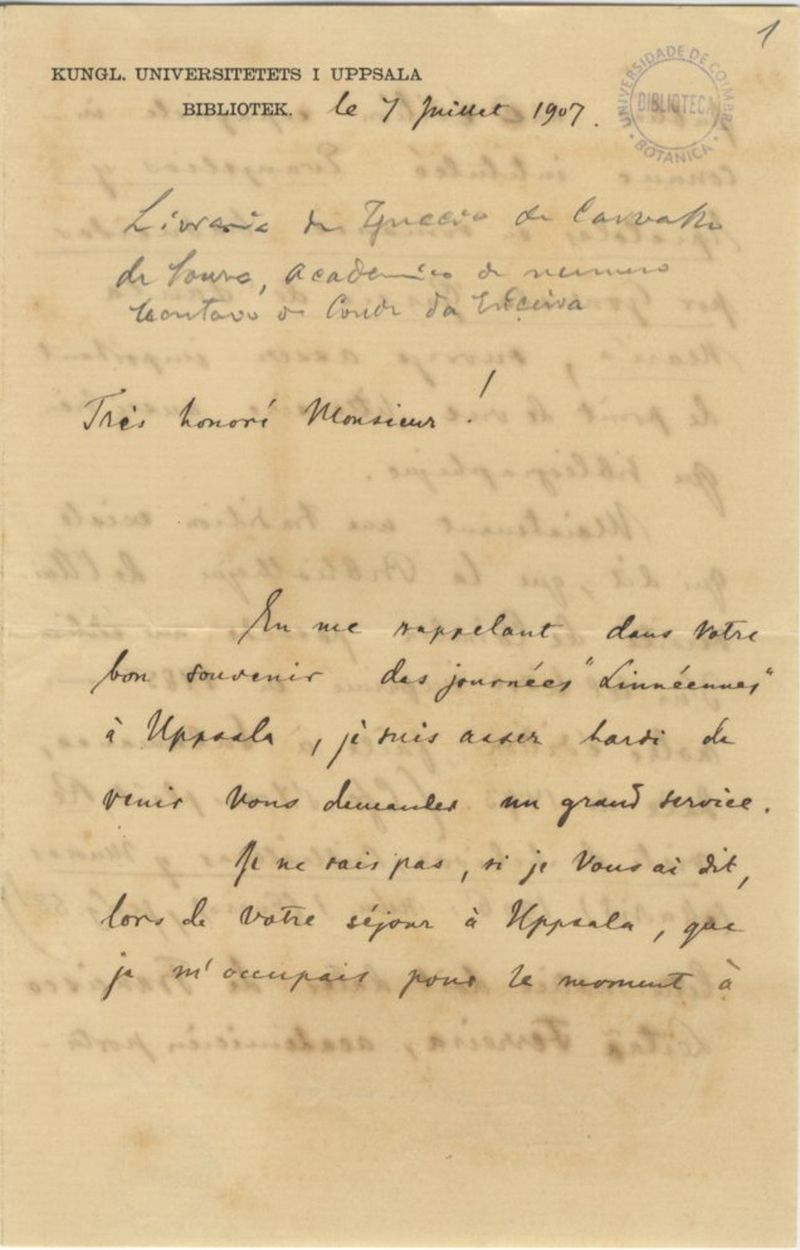 1
KUNGL. UNIVERSITETETS I UPPSALA
BIBLIOTEK. le 7 Juillet 1907.
UNIVERSIDADE DE COIMBRA
BIBLIOTECA
BOTANICA
Livraria de Ignacio de Carvalho
de Souza, academico de numero
do Conde da Ericeira
Très honoré Monsieur!
En me rappelant dans Votre
bon souvenir des journées "Linnéennes"
à Uppsala, je suis assez hardi de
venir Vous demander un grand service.
Je ne sais pas, si je Vous ai dit,
lors de Votre séjour à Uppsala, que
je m'occupais pour le moment à